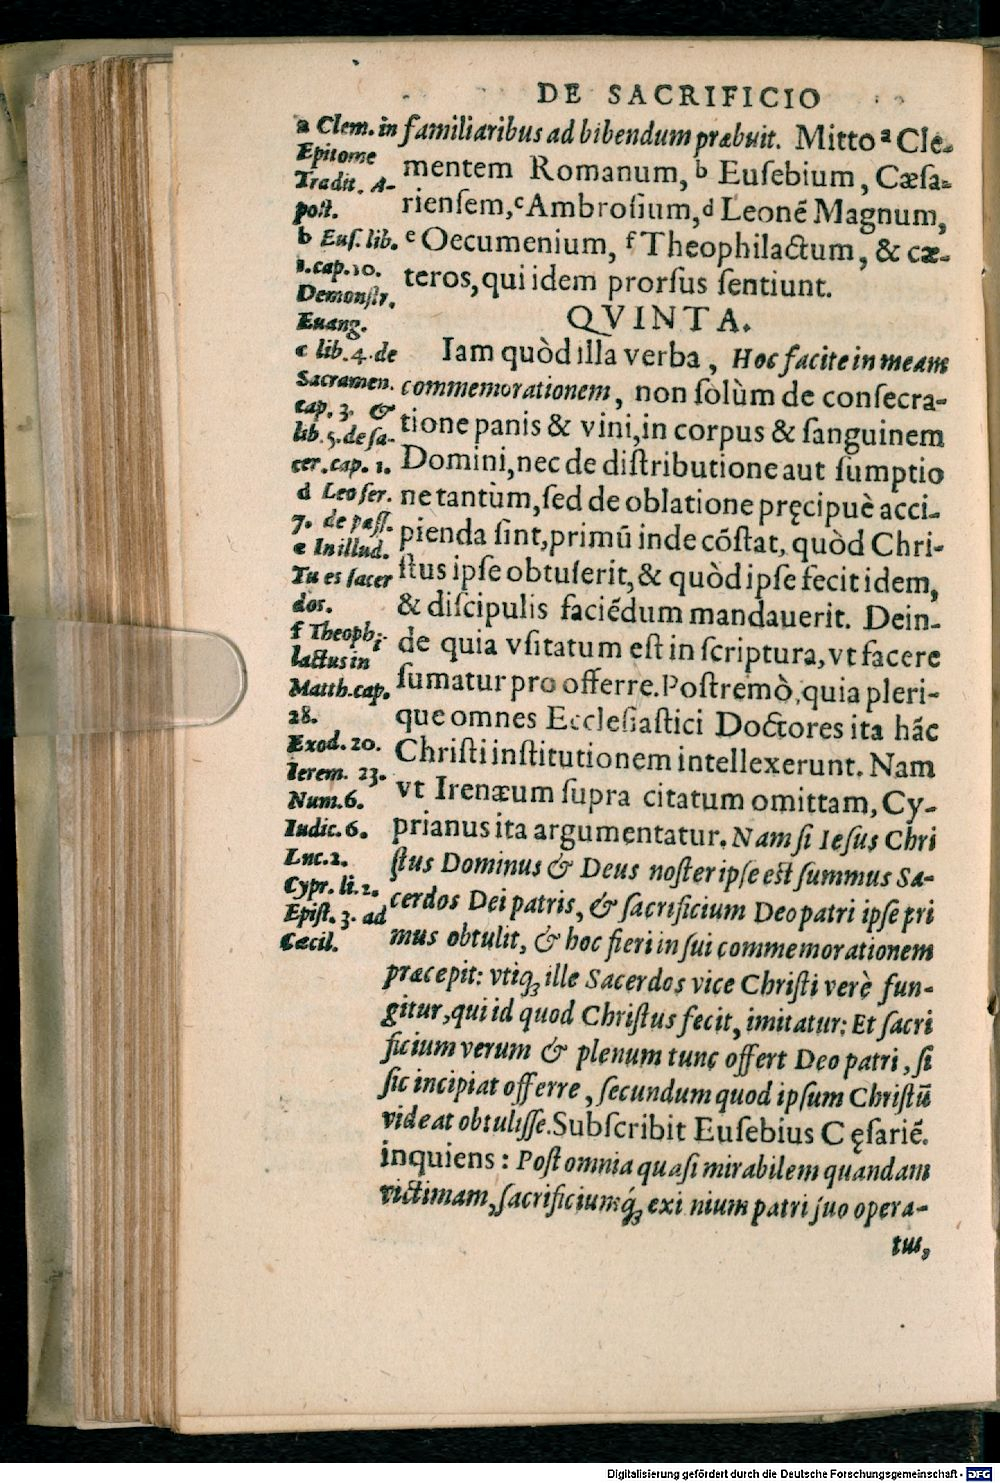 DE SACRIFICIO
familiaribus ad bibendum præbuit. Mitto ᵃ Cle-
mentem Romanum, ᵇ Euſebium, Cæſa-
rienſem, ᶜ Ambroſium, ᵈ Leonē Magnum,
ᵉ Oecumenium, ᶠ Theophilactum, & cæ-
teros, qui idem prorſus ſentiunt.
QVINTA.
Iam quòd illa verba, Hoc facite in meam
commemorationem, non ſolùm de conſecra-
tione panis & vini, in corpus & ſanguinem
Domini, nec de diſtributione aut ſumptio
ne tantùm, ſed de oblatione pręcipuè acci-
pienda ſint, primū inde cōſtat, quòd Chri-
ſtus ipſe obtulerit, & quòd ipſe fecit idem,
& diſcipulis faciēdum mandauerit. Dein-
de quia vſitatum eſt in ſcriptura, vt facere
ſumatur pro offerre. Poſtremò, quia pleri-
que omnes Eccleſiaſtici Doctores ita hāc
Chriſti inſtitutionem intellexerunt. Nam
vt Irenæum ſupra citatum omittam, Cy-
prianus ita argumentatur. Nam ſi Ieſus Chri
ſtus Dominus & Deus noſter ipſe eſt ſummus Sa-
cerdos Dei patris, & ſacrificium Deo patri ipſe pri
mus obtulit, & hoc fieri in ſui commemorationem
præcepit: vtiqꝫ ille Sacerdos vice Chriſti verè fun-
gitur, qui id quod Chriſtus fecit, imitatur: Et ſacri
ficium verum & plenum tunc offert Deo patri, ſi
ſic incipiat offerre, ſecundum quod ipſum Chriſtū
videat obtuliſſe. Subſcribit Euſebius Cęſariē.
inquiens: Poſt omnia quaſi mirabilem quandam
victimam, ſacrificiumq́ꝫ exi nium patri ſuo opera-
tus,
a Clem. in
Epitome
Tradit. A-
poſt.
b Euſ. lib.
1. cap. 10.
Demonſtr.
Euang.
c lib. 4. de
Sacramen.
cap. 3. &
lib. 5. de ſa-
cer. cap. 1.
d Leo ſer.
7. de paſſ.
e In illud.
Tu es ſacer
dos.
f Theophi-
lactus in
Matth. cap.
28.
Exod. 20.
Ierem. 23.
Num. 6.
Iudic. 6.
Luc. 2.
Cypr. li. 2.
Epiſt. 3. ad
Cæcil.
Digitalisierung gefördert durch die Deutsche Forschungsgemeinschaft - DFG